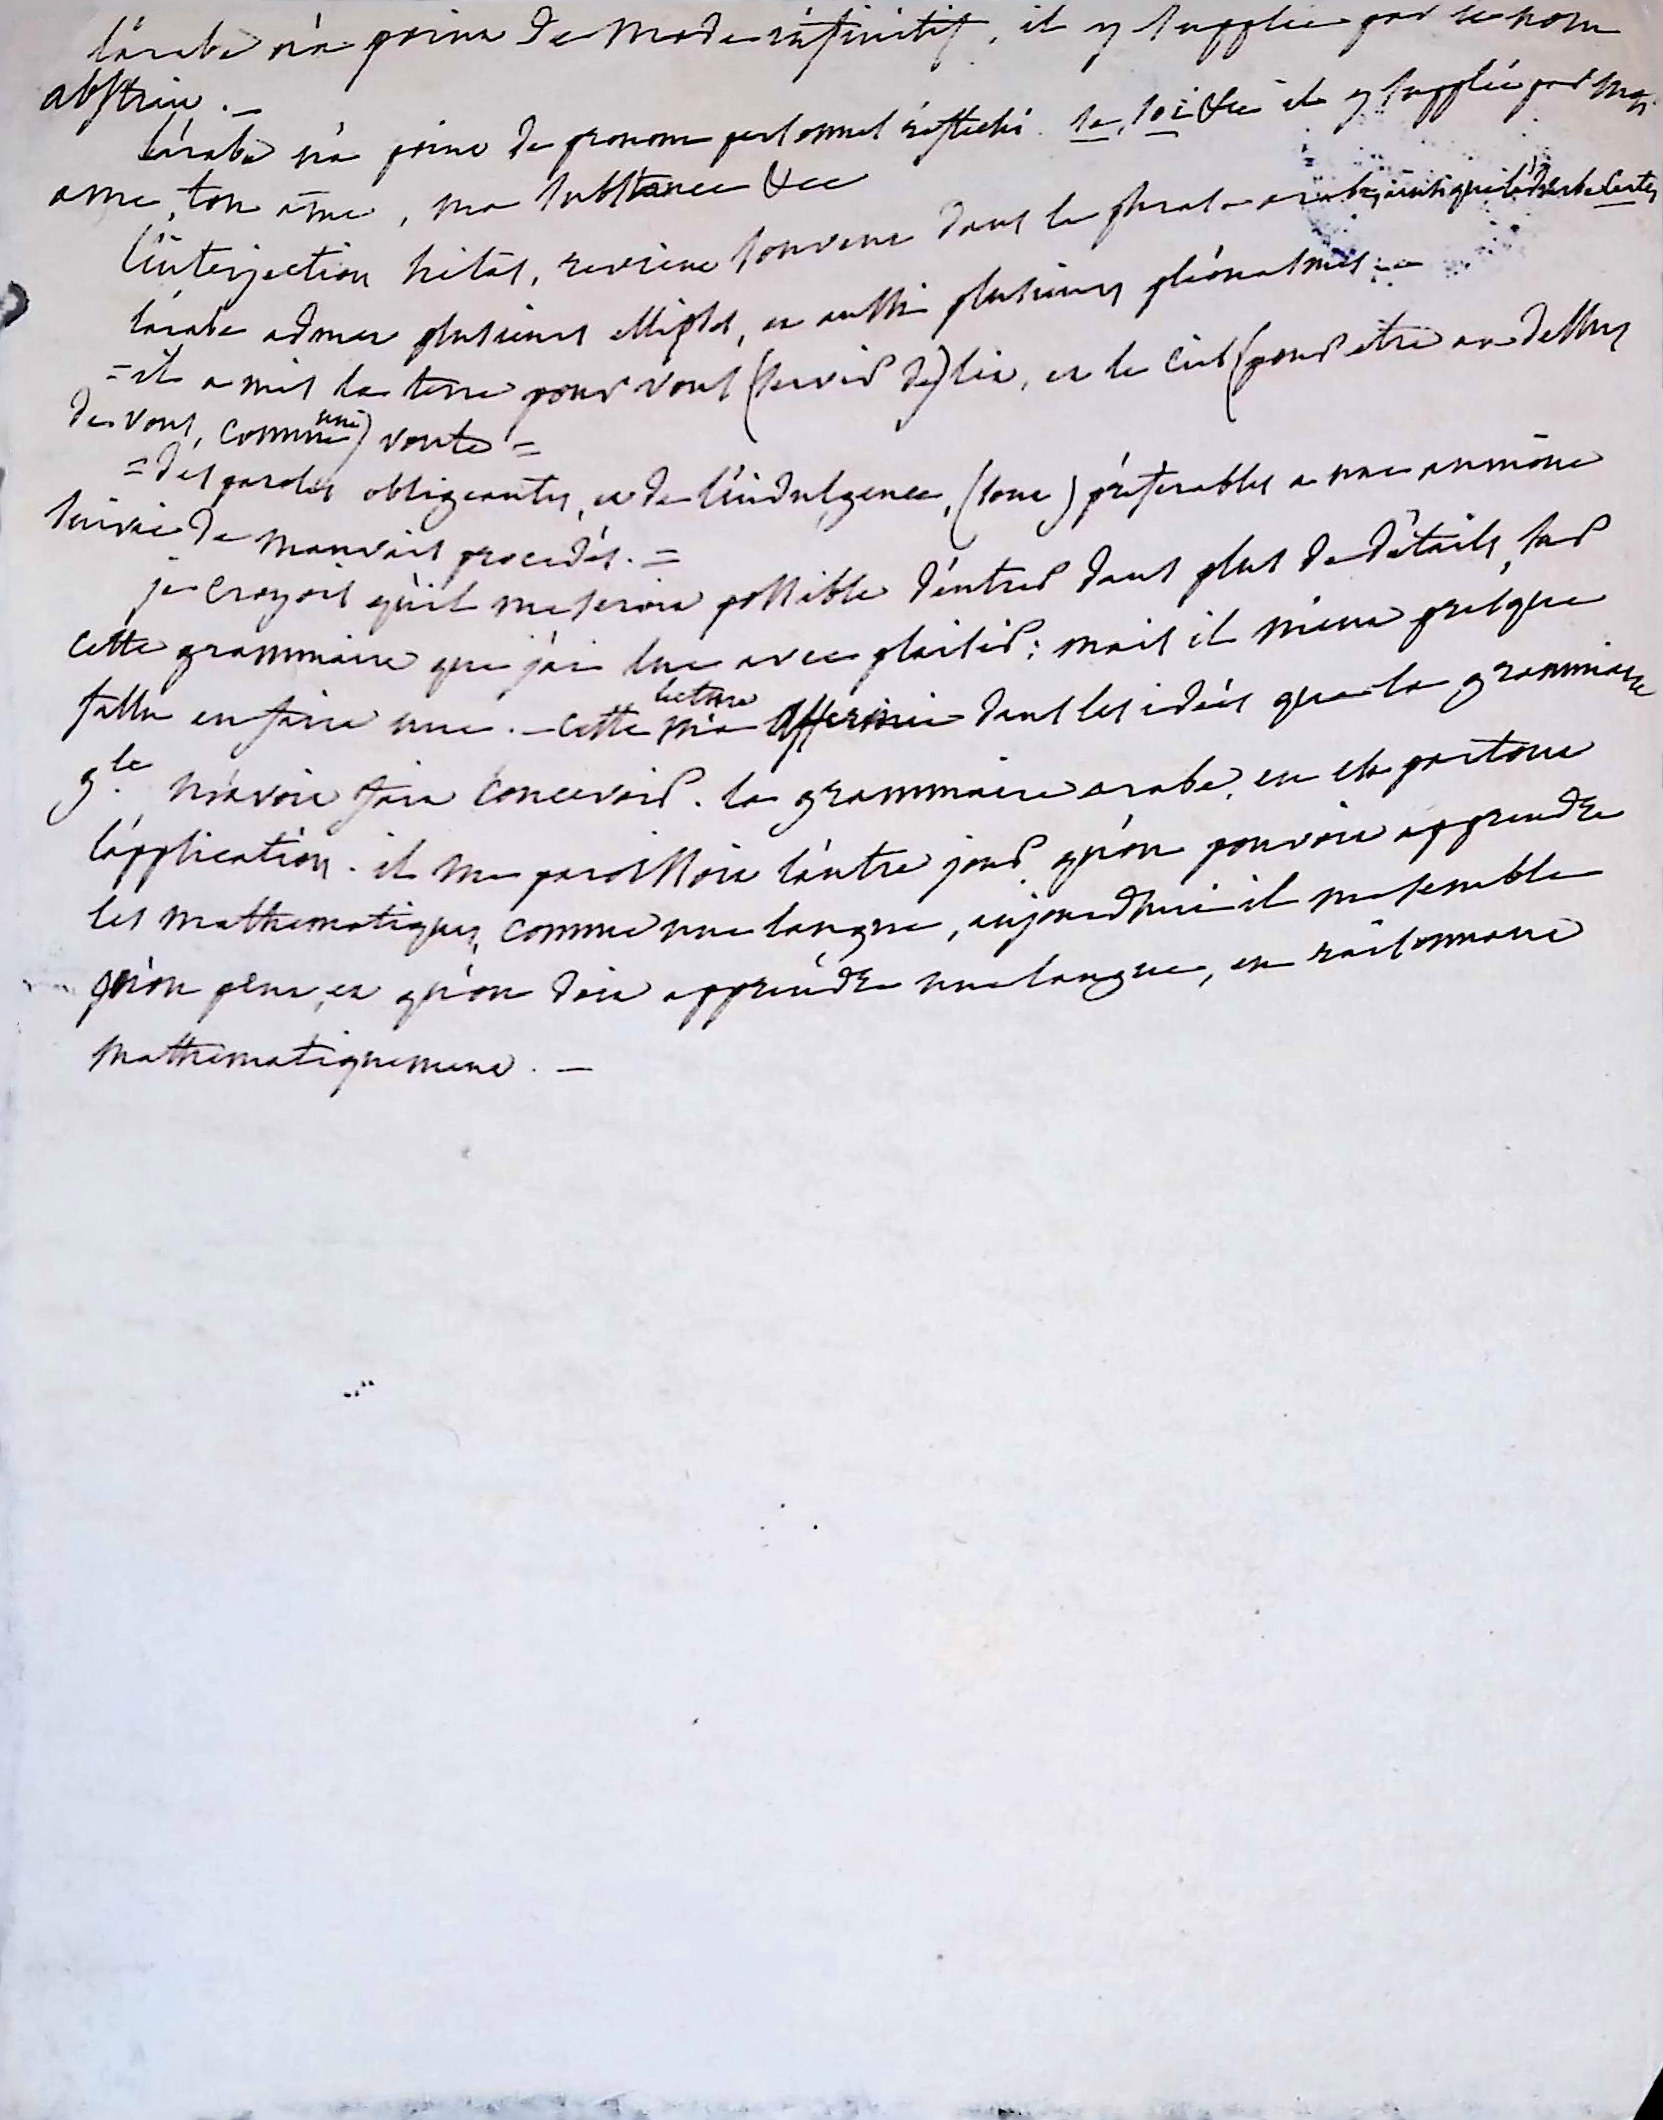 l'arabe n'a point de mode infinitif, il y supplée par le nom
abstrait. —
l'arabe n'a point de pronom personnel réfléchi. se, soi &c il y supplée par mon
ame, ton ame, ma substance &c
l'interjection hélas, revient souvent dans la phrase arabe, ainsi que l'adverbe certes
l'arabe admet plusieurs ellipses, et aussi plusieurs pléonasmes. —
= il a mis la terre pour vous (servir de) lit, et le ciel (pour etre au dessus
de vous, comme une) voute =
= des paroles obligeantes, et de l'indulgence, (sont) préférables a une aumône
suivie de mauvais procédés. =
je croyois qu'il me seroit possible d'entrer dans plus de détails, sur
cette grammaire que j'ai lue avec plaisir: mais il m'eut presque
fallu en faire une. — cette lecture m'a affermie dans les idées que la grammaire
gle m'avoit fait concevoir. la grammaire arabe, en est partout
l'application. il me paroissoit l'autre jour qu'on pouvoit apprendre
les mathematiques, comme une langue, aujourdhui il me semble
qu'on peut, et qu'on doit apprendre une langue, en raisonnant
mathematiquement. —